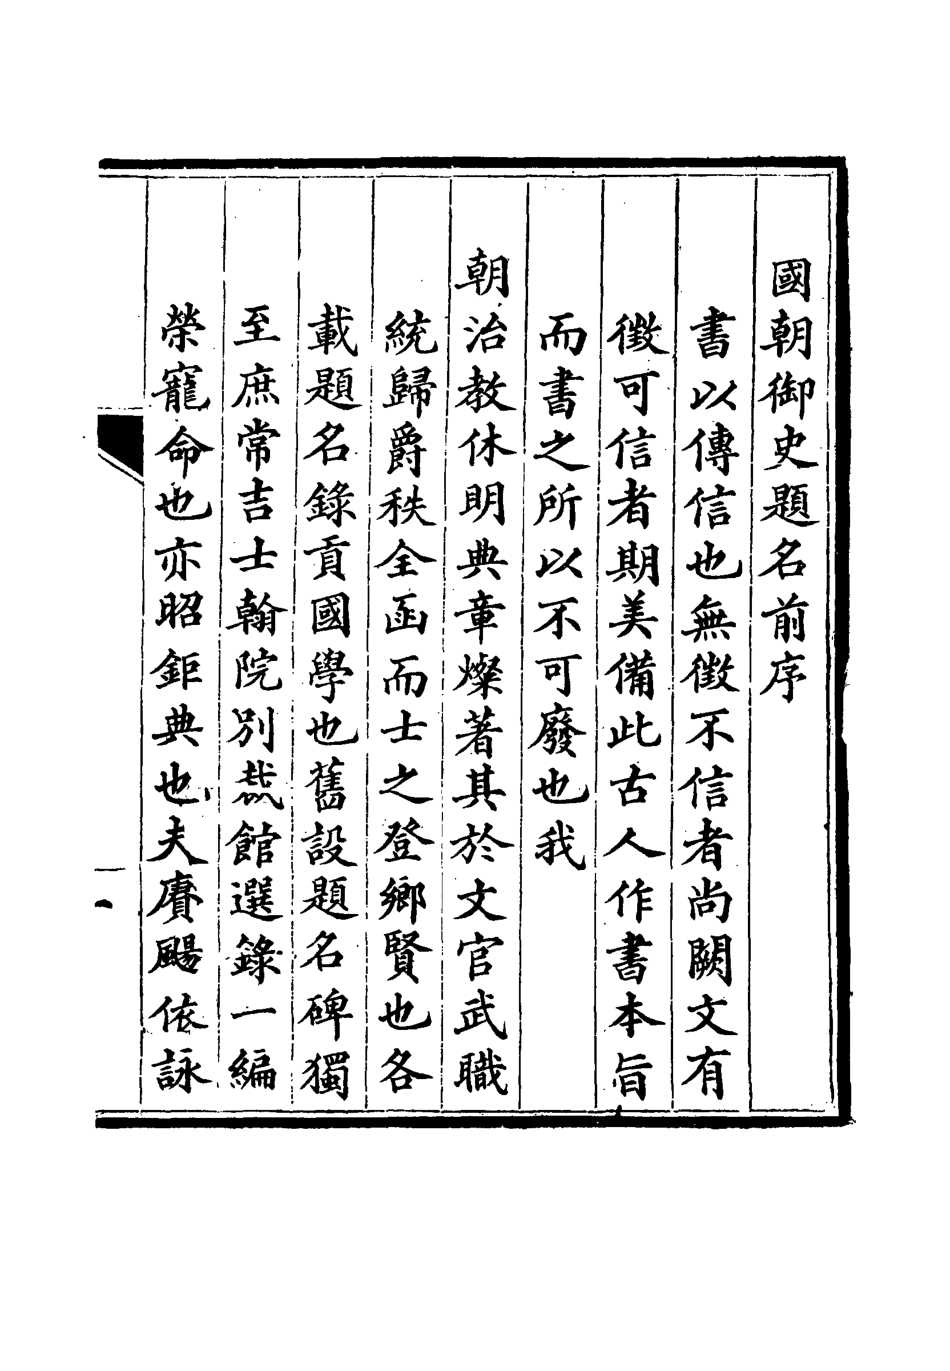 國朝御史題名前序
書以傳信也無徵不信者尚闕文有
徵可信者期美備此古人作書本旨
而書之所以不可廢也我
朝治教休明典章燦著其於文官武職
統歸爵秩全函而士之登鄉賢也各
載題名錄貢國學也舊設題名碑獨
至庶常吉士翰院別裁館選錄一編
榮寵命也亦昭鉅典也夫賡颺依詠
一